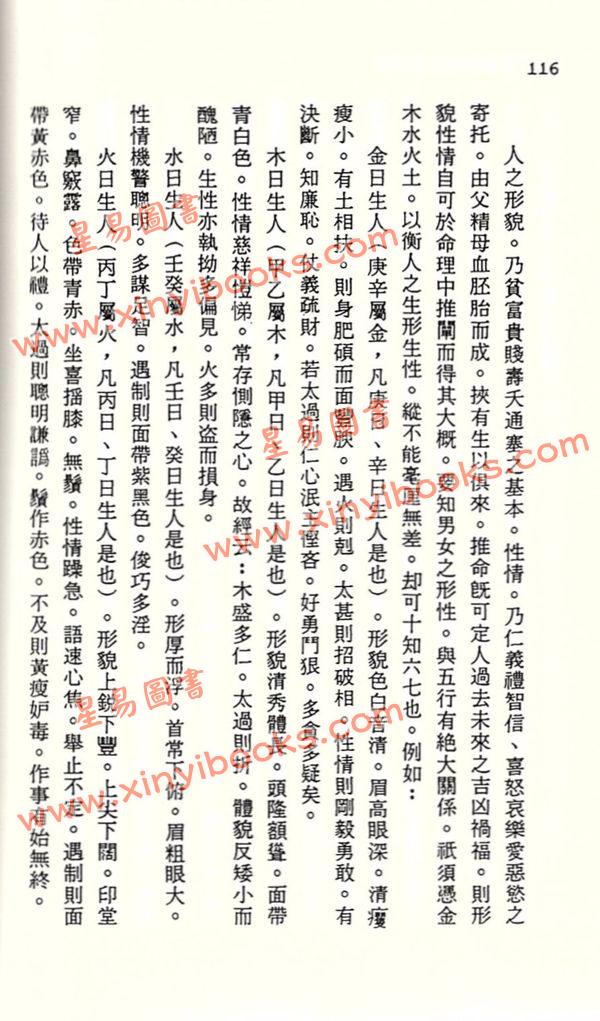 116
人之形貌。乃貧富貴賤壽夭通塞之基本。性情。乃仁義禮智信、喜怒哀樂愛惡慾之
寄托。由父精母血胚胎而成。挾有生以俱來。推命既可定人過去未來之吉凶禍福。則形
貌性情自可於命理中推闡而得其大概。要知男女之形性。與五行有絕大關係。祇須憑金
木水火土。以衡人之生形生性。縱不能毫厘無差。却可十知六七也。例如：
金日生人（庚辛屬金，凡庚日、辛日生人是也）。形貌色白音清。眉高眼深。清癯
瘦小。有土相扶。則身肥碩而面豐腴。遇火則剋。太甚則招破相。性情則剛毅勇敢。有
決斷。知廉恥。仗義疏財。若太過則仁心泯亡慳吝。好勇鬥狠。多貪多疑矣。
木日生人（甲乙屬木，凡甲日、乙日生人是也）。形貌清秀體長。頭隆額聳。面帶
青白色。性情慈祥愷悌。常存惻隱之心。故經云：木盛多仁。太過則折。體貌反矮小而
醜陋。生性亦執拗多偏見。火多則盗而損身。
水日生人（壬癸屬水，凡壬日、癸日生人是也）。形厚而浮。首常下俯。眉粗眼大。
性情機警聰明。多謀足智。遇制則面帶紫黑色。俊巧多淫。
火日生人（丙丁屬火，凡丙日、丁日生人是也）。形貌上銳下豐。上尖下闊。印堂
窄。鼻竅露。色帶青赤。坐喜搖膝。無鬚。性情躁急。語速心焦。舉止不定。遇制則面
帶黃赤色。待人以禮。太過則聰明謙譌。鬚作赤色。不及則黃瘦妒毒。作事有始無終。
星易圖書
www.xinyibooks.com
星易圖書
www.xinyibooks.com
星易圖書
www.xinyibooks.com